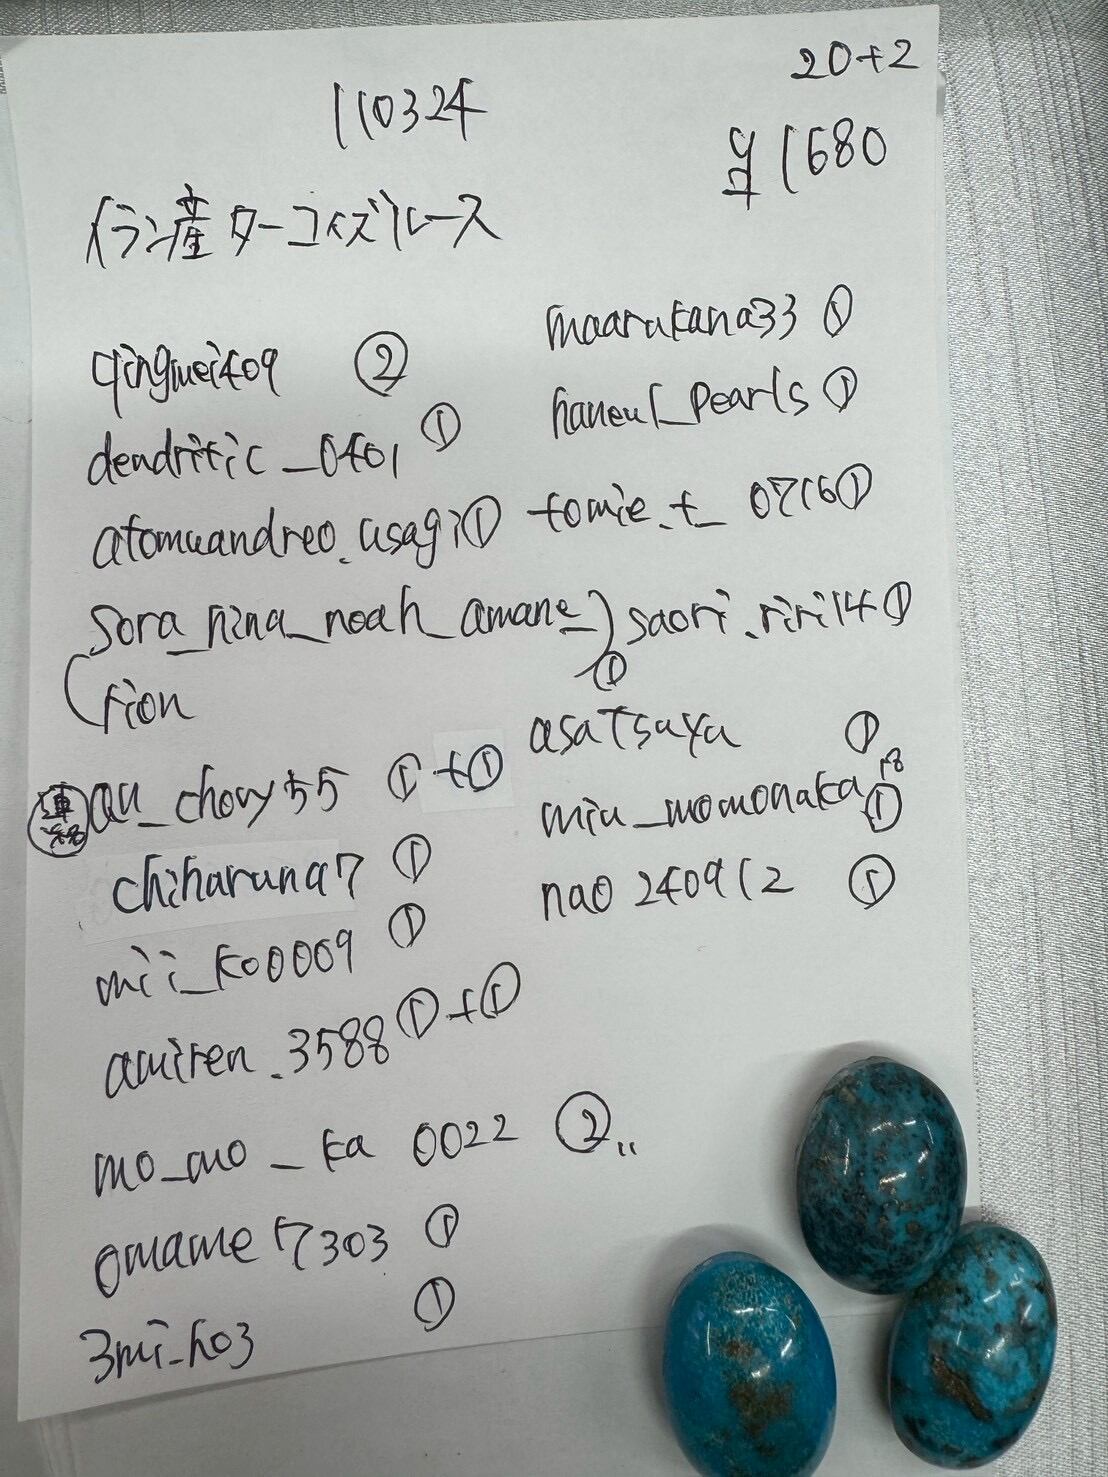 20+2
110324
¥1680
イラン産ターコイズルース
qingmei409 ②
dendritic_0401 ①
atomuandreo.usagi ①
sora_nina_noah_amane_
rion ①
連絡 au_chovy55 ①+①
chiharuna7 ①
mii_ko0009 ①
amiren.3588 ①+①
mo_mo_ka 0022 ②
omame17303 ①
3mi_ho3 ①
maarukana33 ①
haneul_pearls ①
tomie.t_0716 ①
saori.riri14 ①
asatsuya ①
miu_momonaka ①
nao 240912 ①